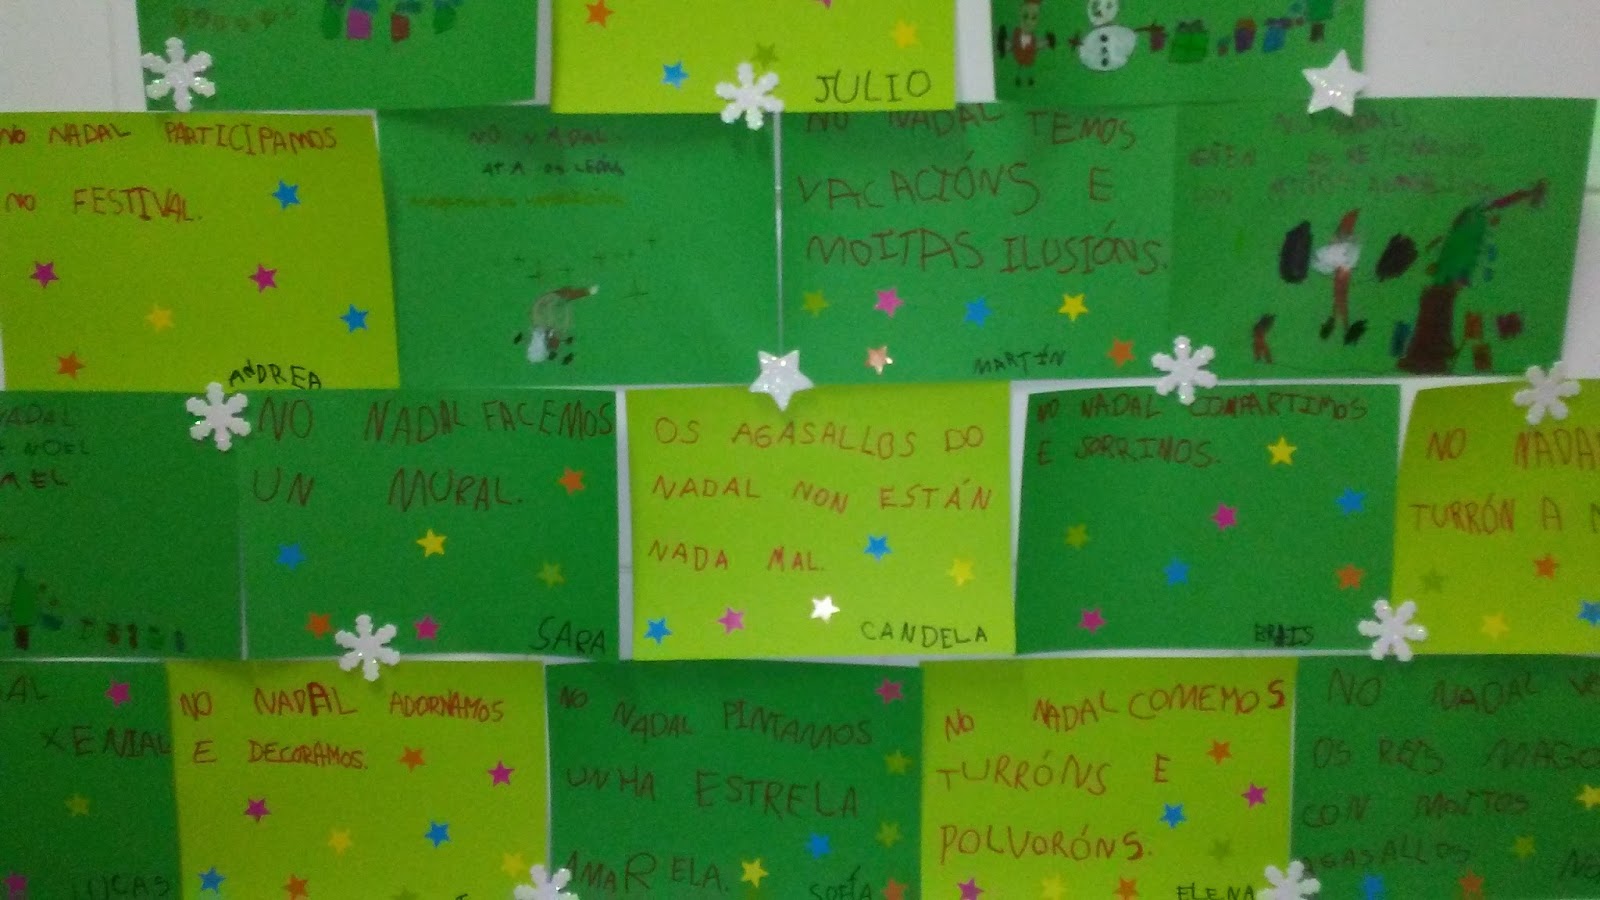 JULIO
NO NADAL PARTICIPAMOS
NO FESTIVAL.
ANDREA
NO NADAL
ATA OS
NO NADAL TEMOS
VACACIÓNS E
MOITAS ILUSIÓNS.
MARTÍN
NADAL
NOEL
NO NADAL FACEMOS
UN MURAL.
SARA
OS AGASALLOS DO
NADAL NON ESTÁN
NADA MAL.
CANDELA
NO NADAL COMPARTIMOS
E SORRIMOS.
BRAIS
NO NADA
TURRÓN A
XENIAL
LUCAS
NO NADAL ADORNAMOS
E DECORAMOS.
NO NADAL PINTAMOS
UNHA ESTRELA
AMARELA.
SOFÍA
NO NADAL COMEMOS
TURRÓNS E
POLVORÓNS.
ELENA
NO NADAL
OS REIS MAGO
CON MOITOS
AGASALLOS